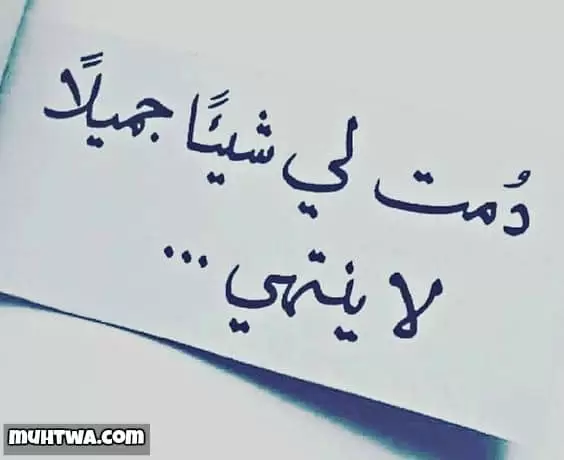 دُمت لي شيئًا جميلًا
لا ينتهي ...
muhtwa.com